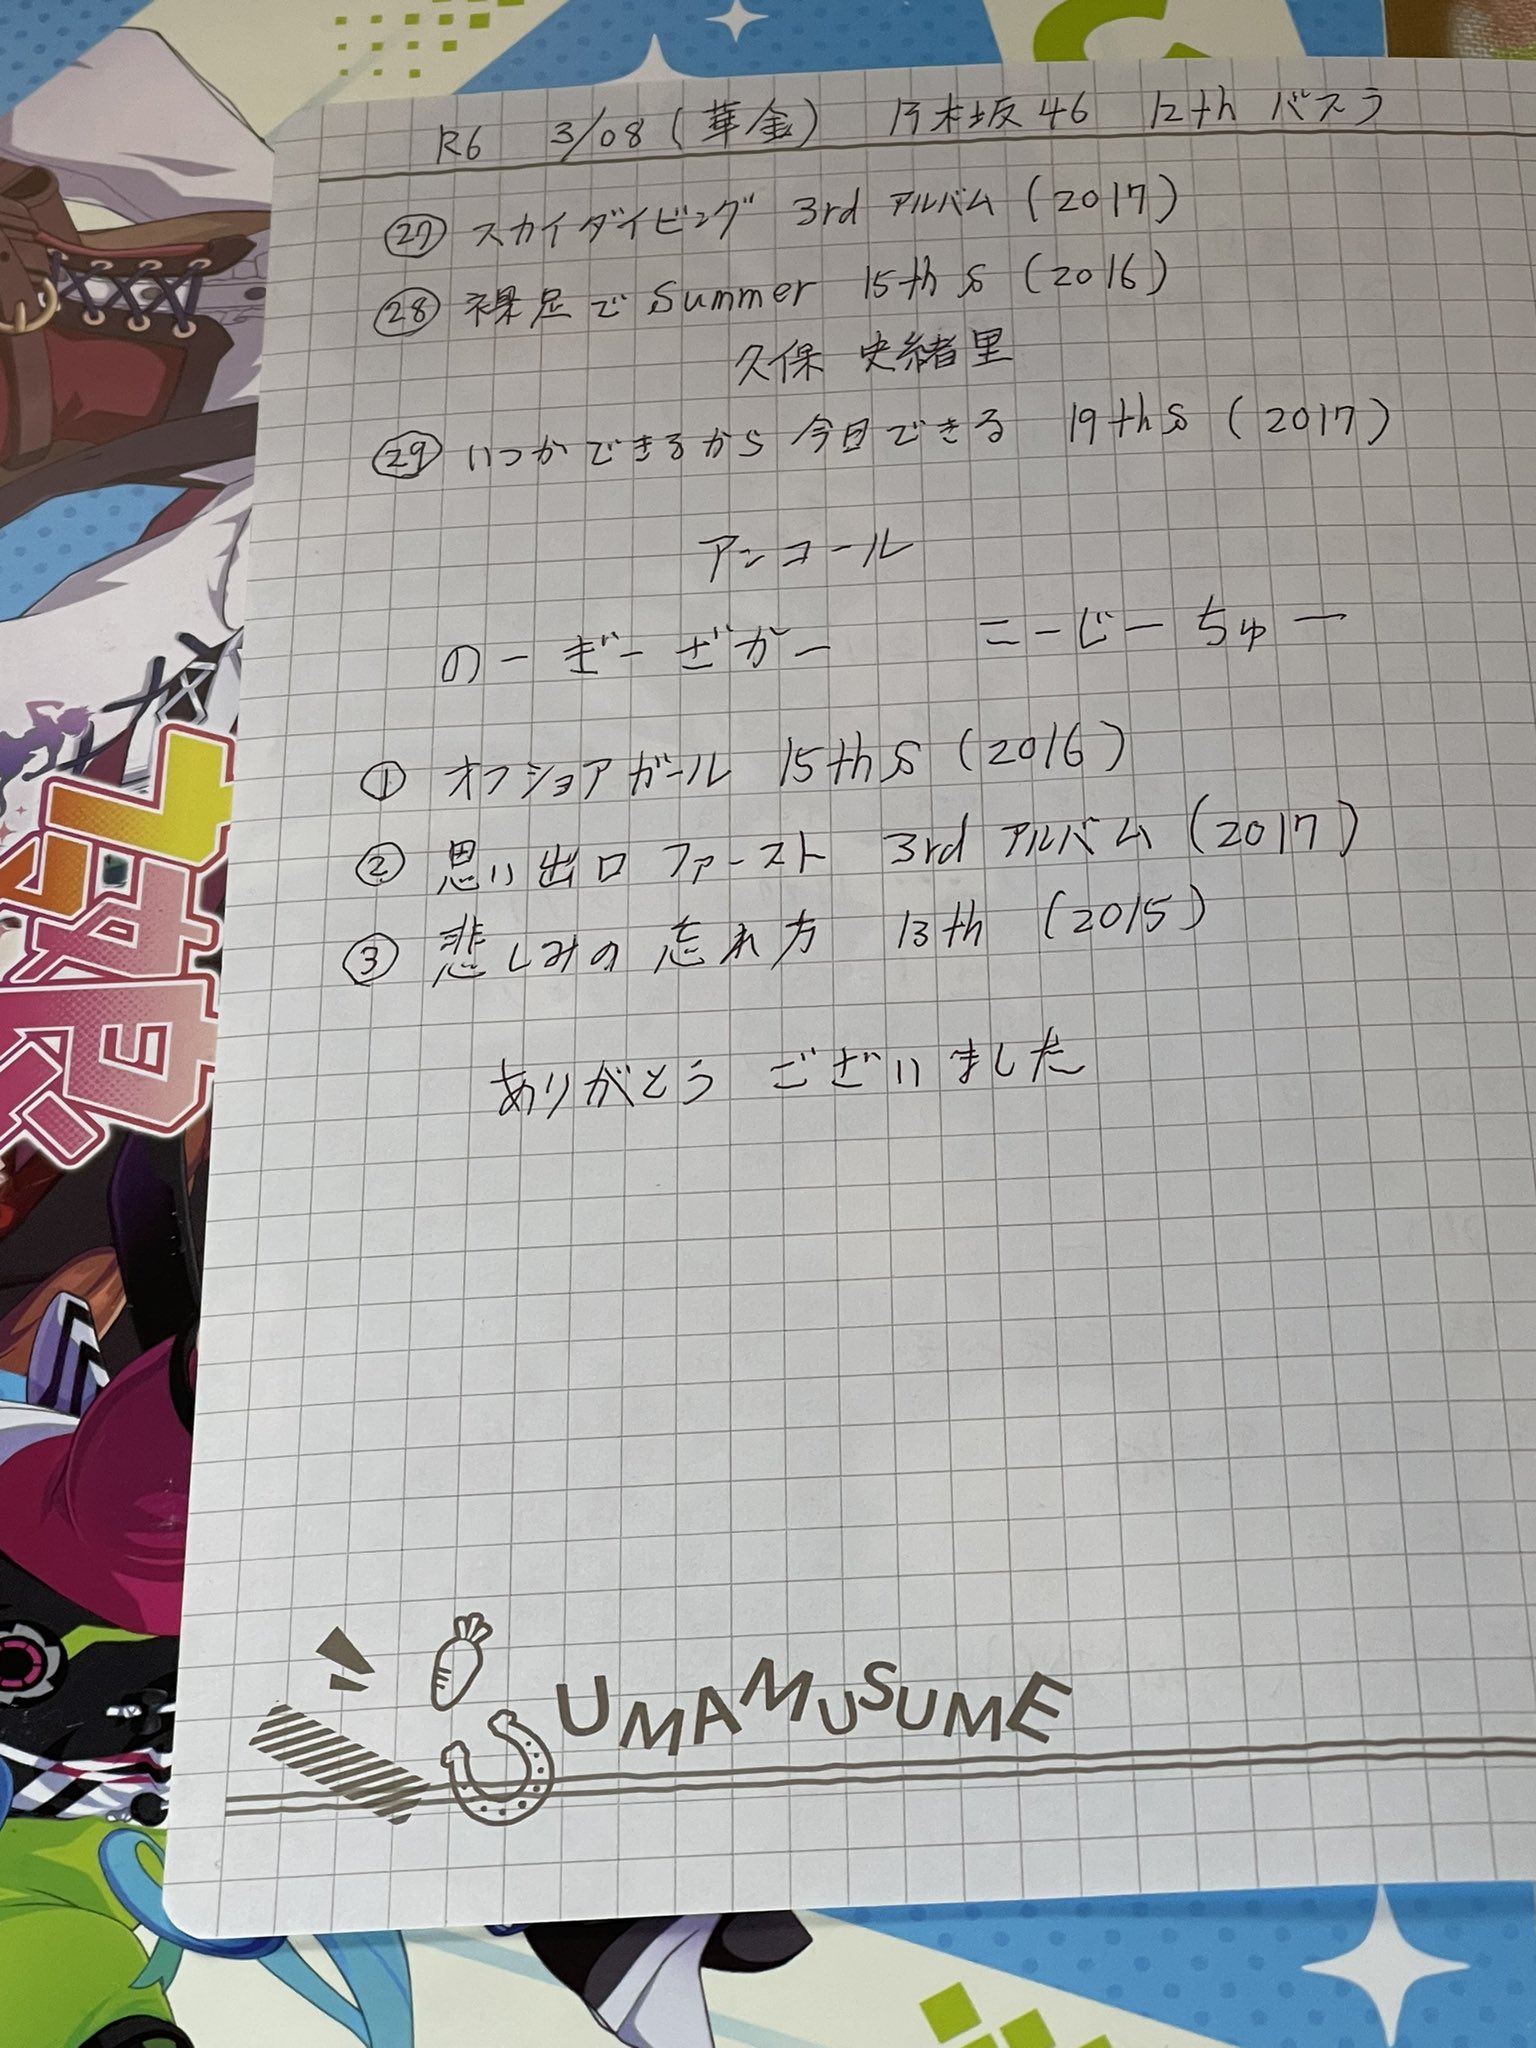 R6 3/08(華金) 乃木坂46 12th バスラ
㉗ スカイダイビング 3rd アルバム(2017)
㉘ 裸足でSummer 15th S(2016)
久保 史緒里
㉙ いつかできるから今日できる 19th S(2017)
アンコール
のーぎーざかー にーじーちゅー
① オフショアガール 15th S(2016)
② 思い出ファースト 3rd アルバム(2017)
③ 悲しみの忘れ方 13th (2015)
ありがとう ございました
UMAMUSUME